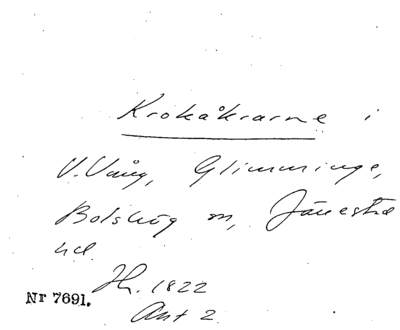 Krokåkrarne i
V. Vång, Glimminge,
Bolshög m, Järrestad
hd.
Hh. 1822
Akt 2
Nr 7691.